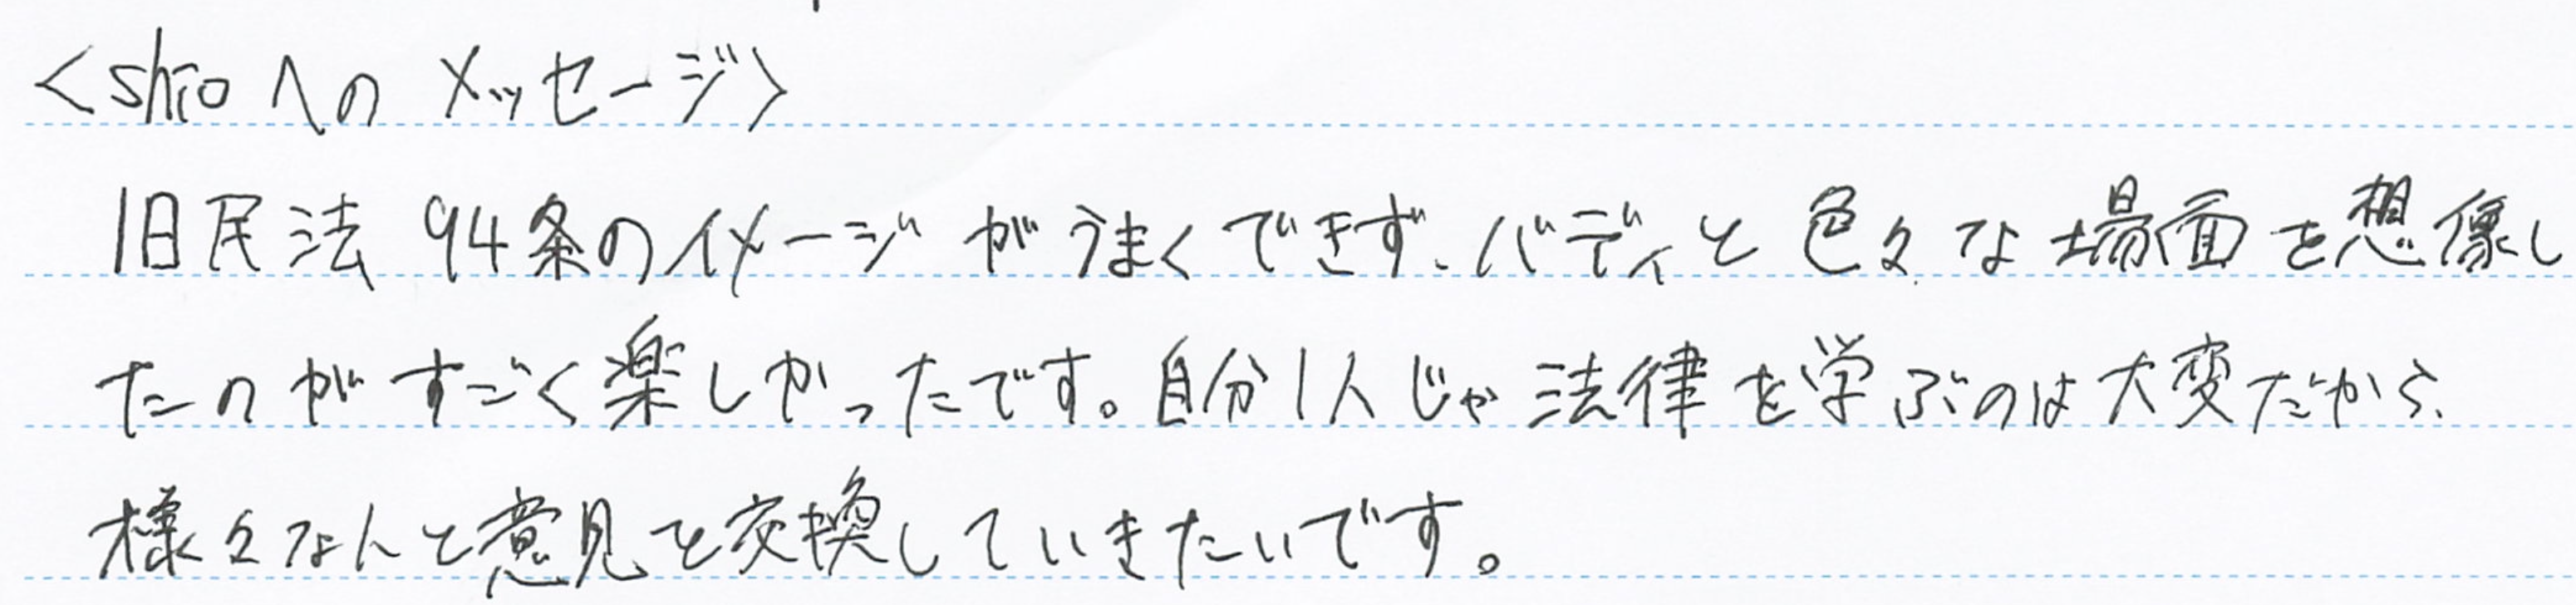 <shioへのメッセージ>
旧民法94条のイメージがうまくできず、バディと色々な場面を想像し
たのがすごく楽しかったです。自分1人じゃ法律を学ぶのは大変だから、
様々な人と意見を交換していきたいです。